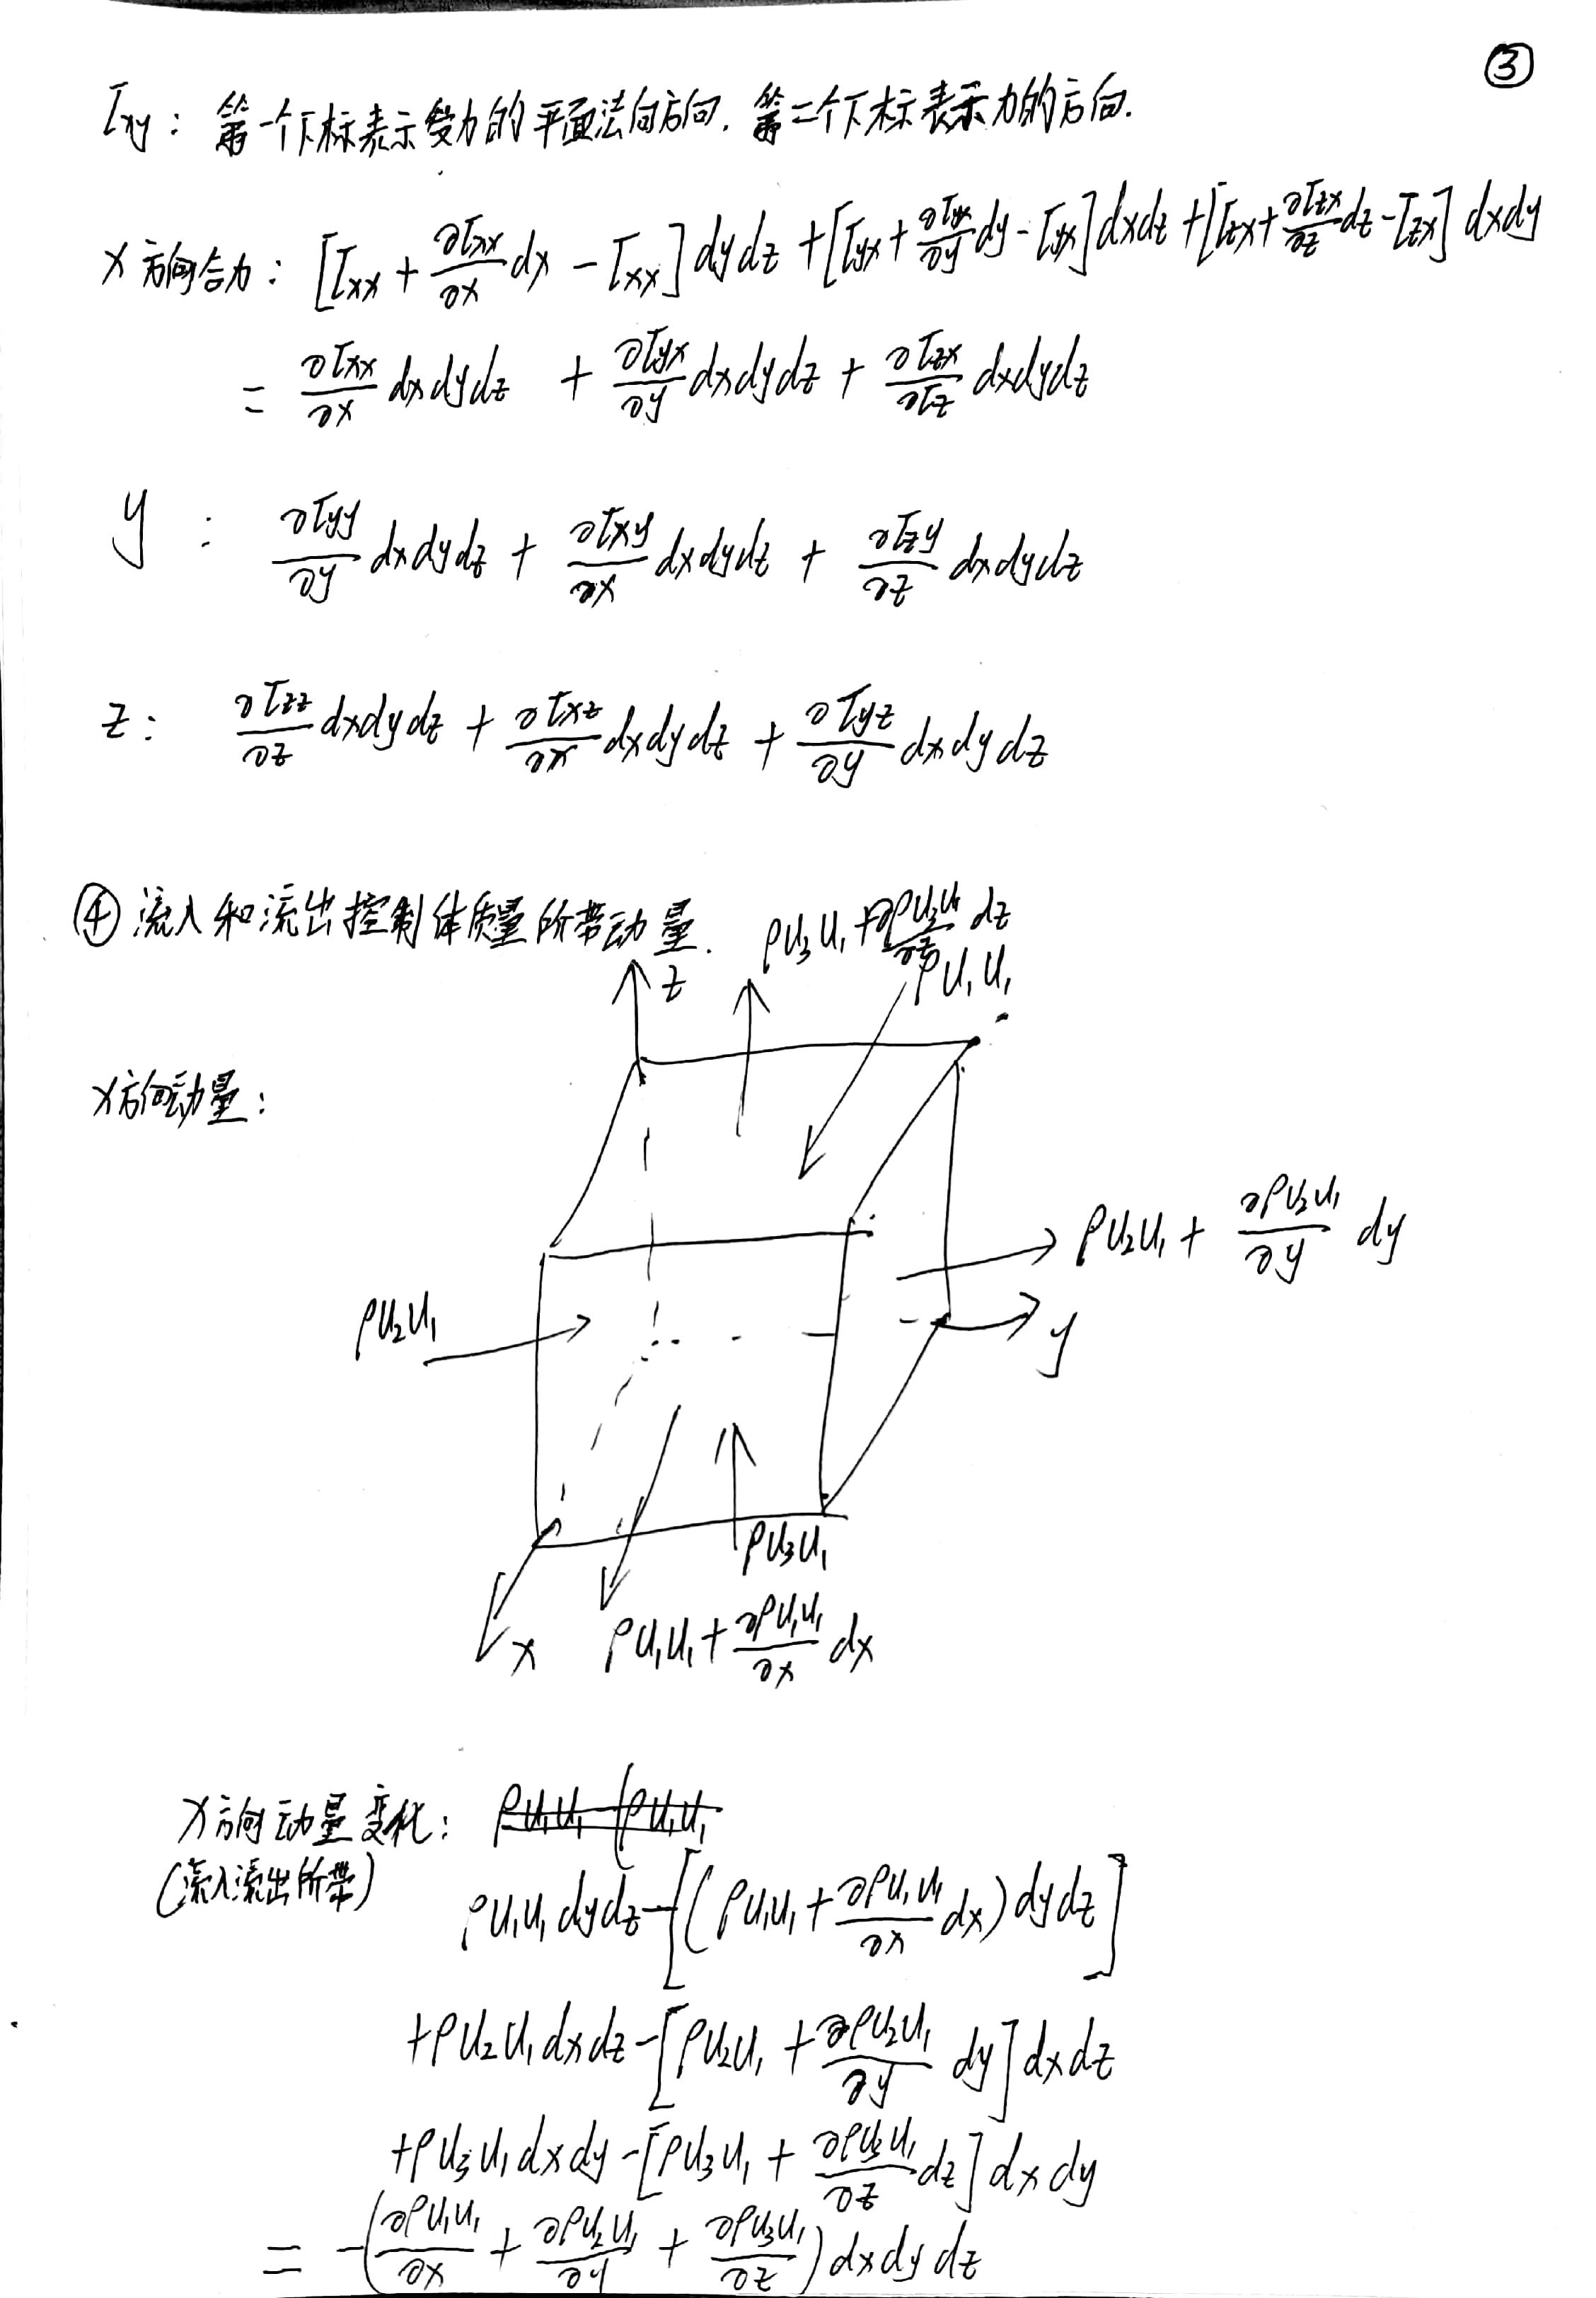 ③
τxy：第一个下标表示受力的平面法向方向. 第二个下标表示力的方向.
x 方向合力：[τxx + ∂τxx/∂x dx - τxx] dydz + [τyx + ∂τyx/∂y dy - τyx] dxdz + [τzx + ∂τzx/∂z dz - τzx] dxdy
= ∂τxx/∂x dxdydz + ∂τyx/∂y dxdydz + ∂τzx/∂τz dxdydz
y : ∂τyy/∂y dxdydz + ∂τxy/∂x dxdydz + ∂τzy/∂z dxdydz
z: ∂τzz/∂z dxdydz + ∂τxz/∂x dxdydz + ∂τyz/∂y dxdydz
④ 流入和流出控制体质量所带动量.
ρu₃u₁ + ∂ρu₃u₁/∂z dz
z
ρu₁u₁
x方向动量：
ρu₂u₁ + ∂ρu₂u₁/∂y dy
ρu₂u₁
y
ρu₃u₁
x
ρu₁u₁ + ∂ρu₁u₁/∂x dx
x方向动量变化： ρu₁u₁ - (ρu₁u₁
(流入流出所带)
ρu₁u₁ dydz - [(ρu₁u₁ + ∂ρu₁u₁/∂x dx) dydz]
+ρu₂u₁ dxdz - [ρu₂u₁ + ∂ρu₂u₁/∂y dy] dxdz
+ρu₃u₁ dxdy - [ρu₃u₁ + ∂ρu₃u₁/∂z dz] dxdy
= -(∂ρu₁u₁/∂x + ∂ρu₂u₁/∂y + ∂ρu₃u₁/∂z) dxdydz